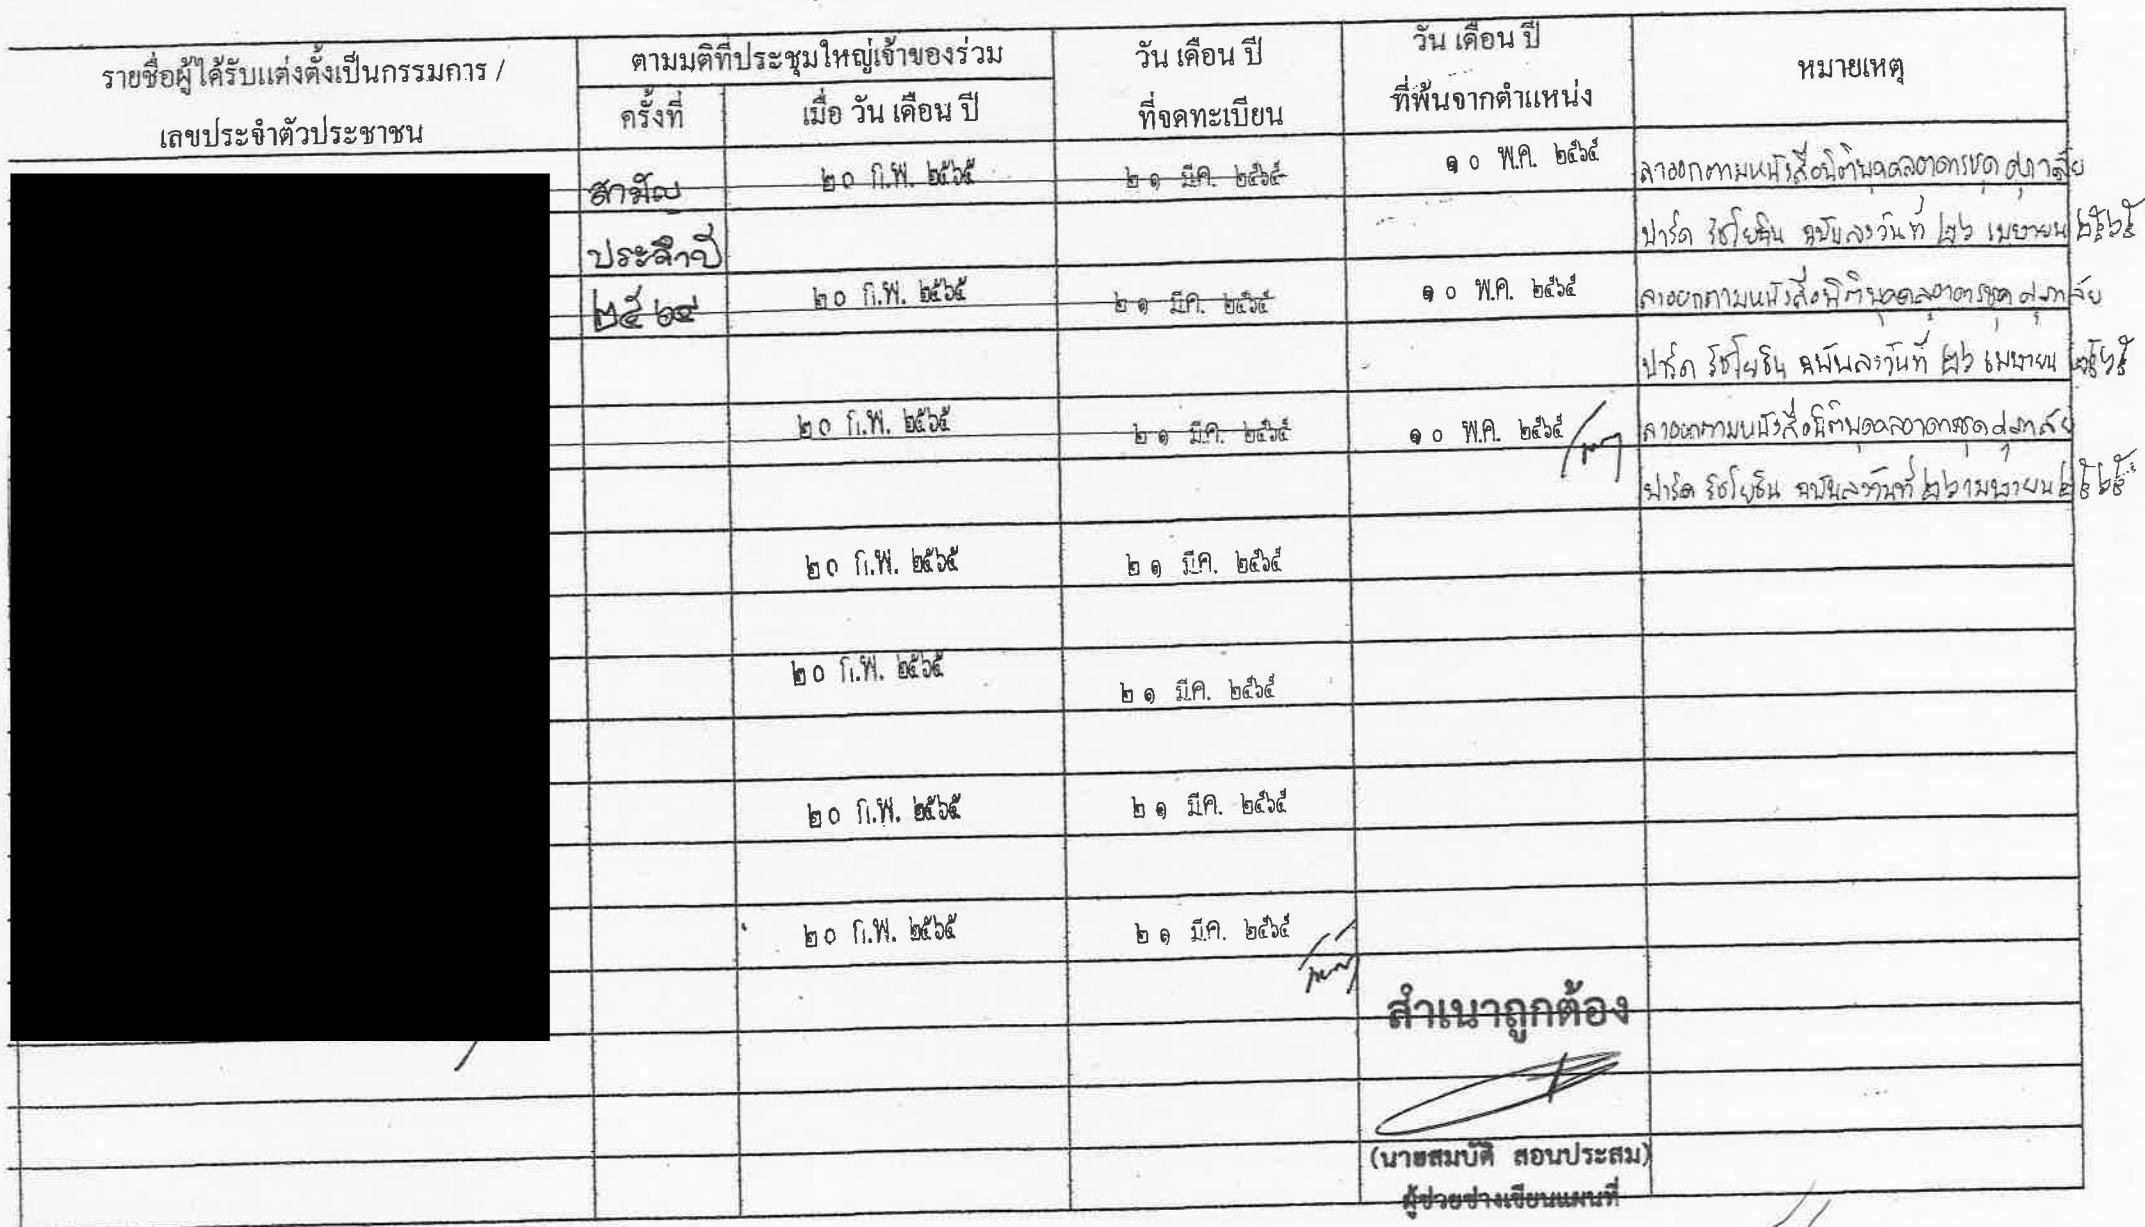 รายชื่อผู้ได้รับแต่งตั้งเป็นกรรมการ /
เลขประจำตัวประชาชน
ตามมติที่ประชุมใหญ่เจ้าของร่วม
ครั้งที่
เมื่อ วัน เดือน ปี
วัน เดือน ปี
ที่จดทะเบียน
วัน เดือน ปี
ที่พ้นจากตำแหน่ง
หมายเหตุ
สามัญ ๒๐ ก.พ. ๒๕๖๕ ๒๑ มี.ค. ๒๕๖๕ ๑๐ พ.ค. ๒๕๖๕ ลาออกตามหนังสือนิติบุคคลอาคารชุด ศุภาลัย
ประจำปี ปาร์ค รัชโยธิน ฉบับลงวันที่ ๒๖ เมษายน ๒๕๖๕
๒๕๖๔ ๒๐ ก.พ. ๒๕๖๕ ๒๑ มี.ค. ๒๕๖๕ ๑๐ พ.ค. ๒๕๖๕ ลาออกตามหนังสือนิติบุคคลอาคารชุด ศุภาลัย
ปาร์ค รัชโยธิน ฉบับลงวันที่ ๒๖ เมษายน ๒๕๖๕
๒๐ ก.พ. ๒๕๖๕ ๒๑ มี.ค. ๒๕๖๕ ๑๐ พ.ค. ๒๕๖๕ ลาออกตามหนังสือนิติบุคคลอาคารชุด ศุภาลัย
ปาร์ค รัชโยธิน ฉบับลงวันที่ ๒๖ เมษายน ๒๕๖๕
๒๐ ก.พ. ๒๕๖๕ ๒๑ มี.ค. ๒๕๖๕
๒๐ ก.พ. ๒๕๖๕ ๒๑ มี.ค. ๒๕๖๕
๒๐ ก.พ. ๒๕๖๕ ๒๑ มี.ค. ๒๕๖๕
๒๐ ก.พ. ๒๕๖๕ ๒๑ มี.ค. ๒๕๖๕
สำเนาถูกต้อง
(นายสมบัติ สอนประสม)
ผู้ช่วยช่างเขียนแผนที่